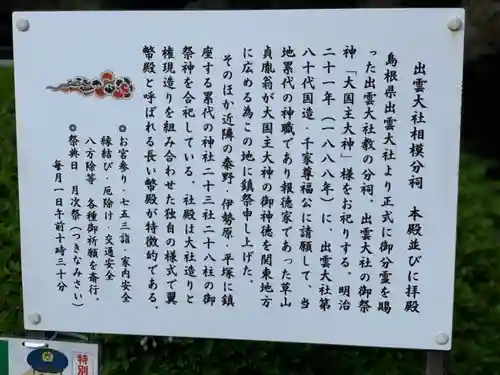 出雲大社相模分祠 本殿並びに拝殿
島根県出雲大社より正式に御分霊を賜
った出雲大社教の分祠。出雲大社の御祭
神「大国主大神」様をお祀りする。明治
二十一年(一八八八年)に、出雲大社第
八十代国造・千家尊福公に請願して、当
地累代の神職であり報徳家であった草山
貞胤翁が大国主大神の御神徳を関東地方
に広める為この地に鎮祭申し上げた。
そのほか近隣の秦野・伊勢原・平塚に鎮
座する累代の神社二十三社二十八柱の御
祭神を合祀している。社殿は大社造りと
権現造りを組み合わせた独自の様式で翼
幣殿と呼ばれる長い幣殿が特徴的である。
◎お宮参り・七五三詣・家内安全
縁結び・厄除け・交通安全
八方除等 各種御祈願を斎行。
◎祭典日 月次祭(つきなみさい)
毎月一日午前十時三十分
特別